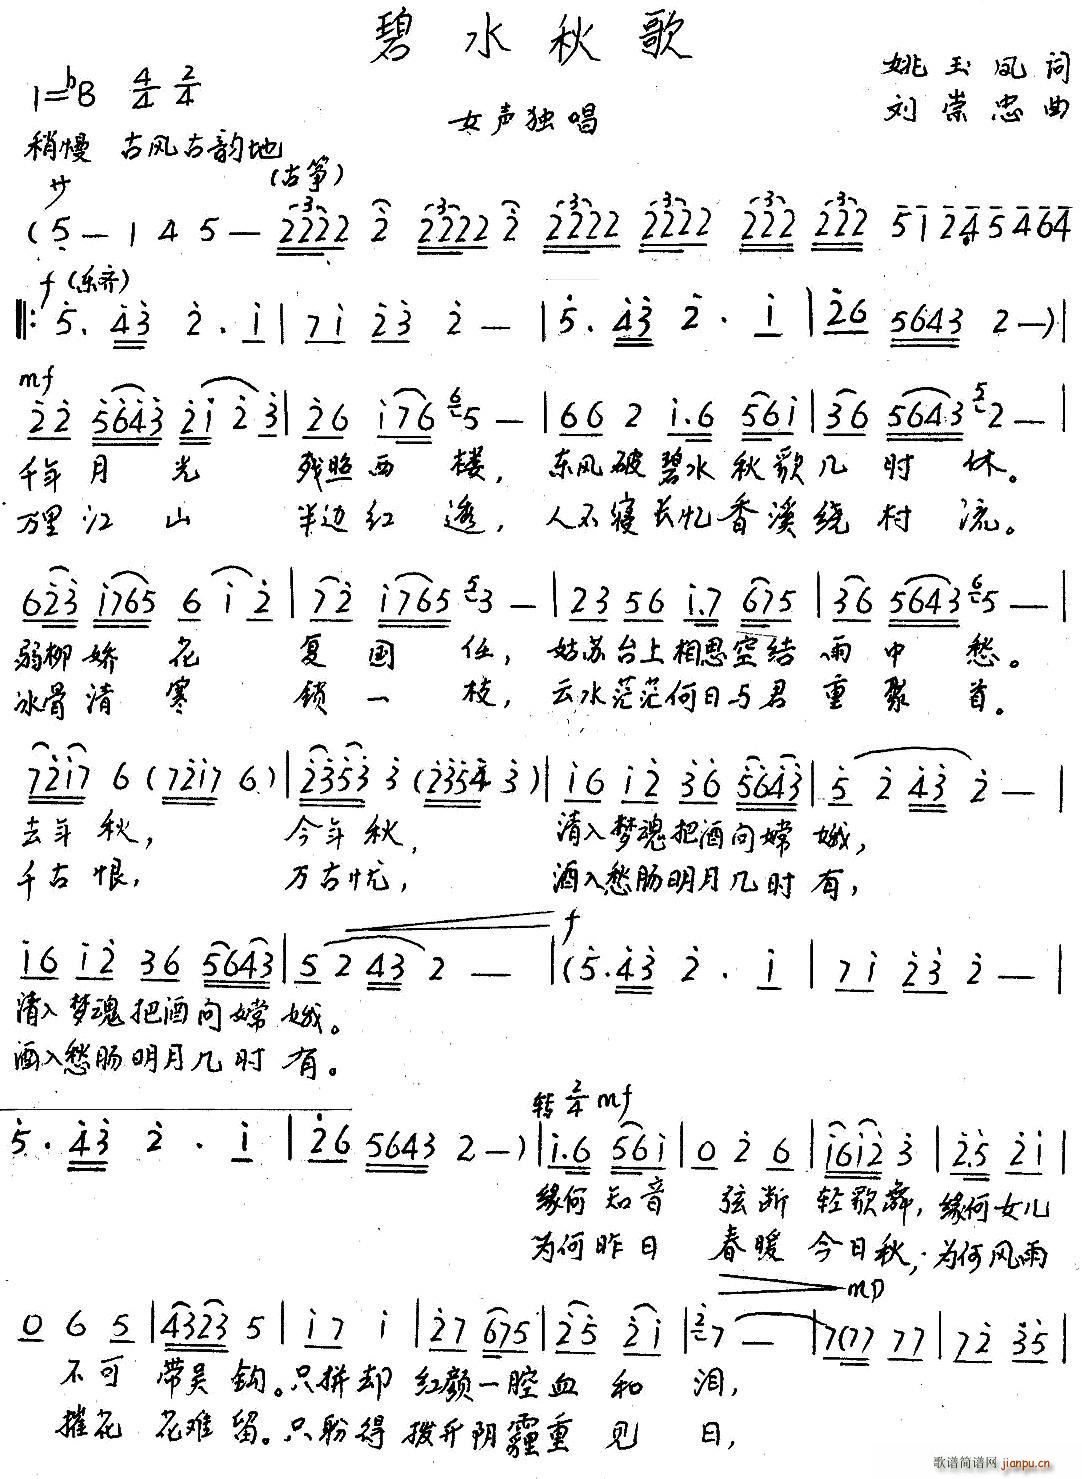 碧水秋歌
姚玉凤 词
1=♭B 4/4 2/4
女声独唱
刘崇忠 曲
稍慢 古风古韵地
サ (古筝)
(5 — 1 4 5 — 2222 2 2222 2 2222 2222 222 222 5 1 2 4 5 4 6 4
f (乐齐)
‖: 5. 43 2. 1 | 71 23 2 — | 5. 43 2. 1 | 26 5643 2 —) |
mf
22 5643 21 2 3 | 26 176 5 — | 66 2 1.6 561 | 36 5643 2 — |
千年月光 残照西楼，东风破碧水秋歌几时休。
万里江山 半边红透，人不寝长忆香溪绕村流。
623 1765 6 1 2 | 72 1765 3 — | 23 56 1.7 675 | 36 5643 5 — |
弱柳娇花 复国任，姑苏台上相思空结雨中愁。
冰骨清寒 锁一枝，云水茫茫何日与君重聚首。
7217 6 (7217 6) | 2353 3 (2354 3) | 16 12 36 5643 | 5 2 43 2 — |
去年秋，今年秋，清入梦魂把酒问嫦娥，
千古恨，万古忧，酒入愁肠明月几时有，
f
16 12 36 5643 | 5 2 43 2 — | (5. 43 2. 1 | 71 23 2 — |
清入梦魂把酒问嫦娥。
酒入愁肠明月几时有。
转2/4 mf
5. 43 2. 1 | 26 5643 2 —) | 1.6 561 | 0 2 6 | 1612 3 | 2.5 21 |
缘何知音 弦断轻歌舞，缘何女儿
为何昨日 春暖今日秋，为何风雨
mp
0 6 5 | 4323 5 | 17 1 | 27 675 | 25 21 | 7 — | 7(77 77 | 72 35 |
不可带吴钩。只拼却红颜一腔血和泪，
摧花花难留。只盼得拨开阴霾重见日，
歌谱简谱网 jianpu.cn